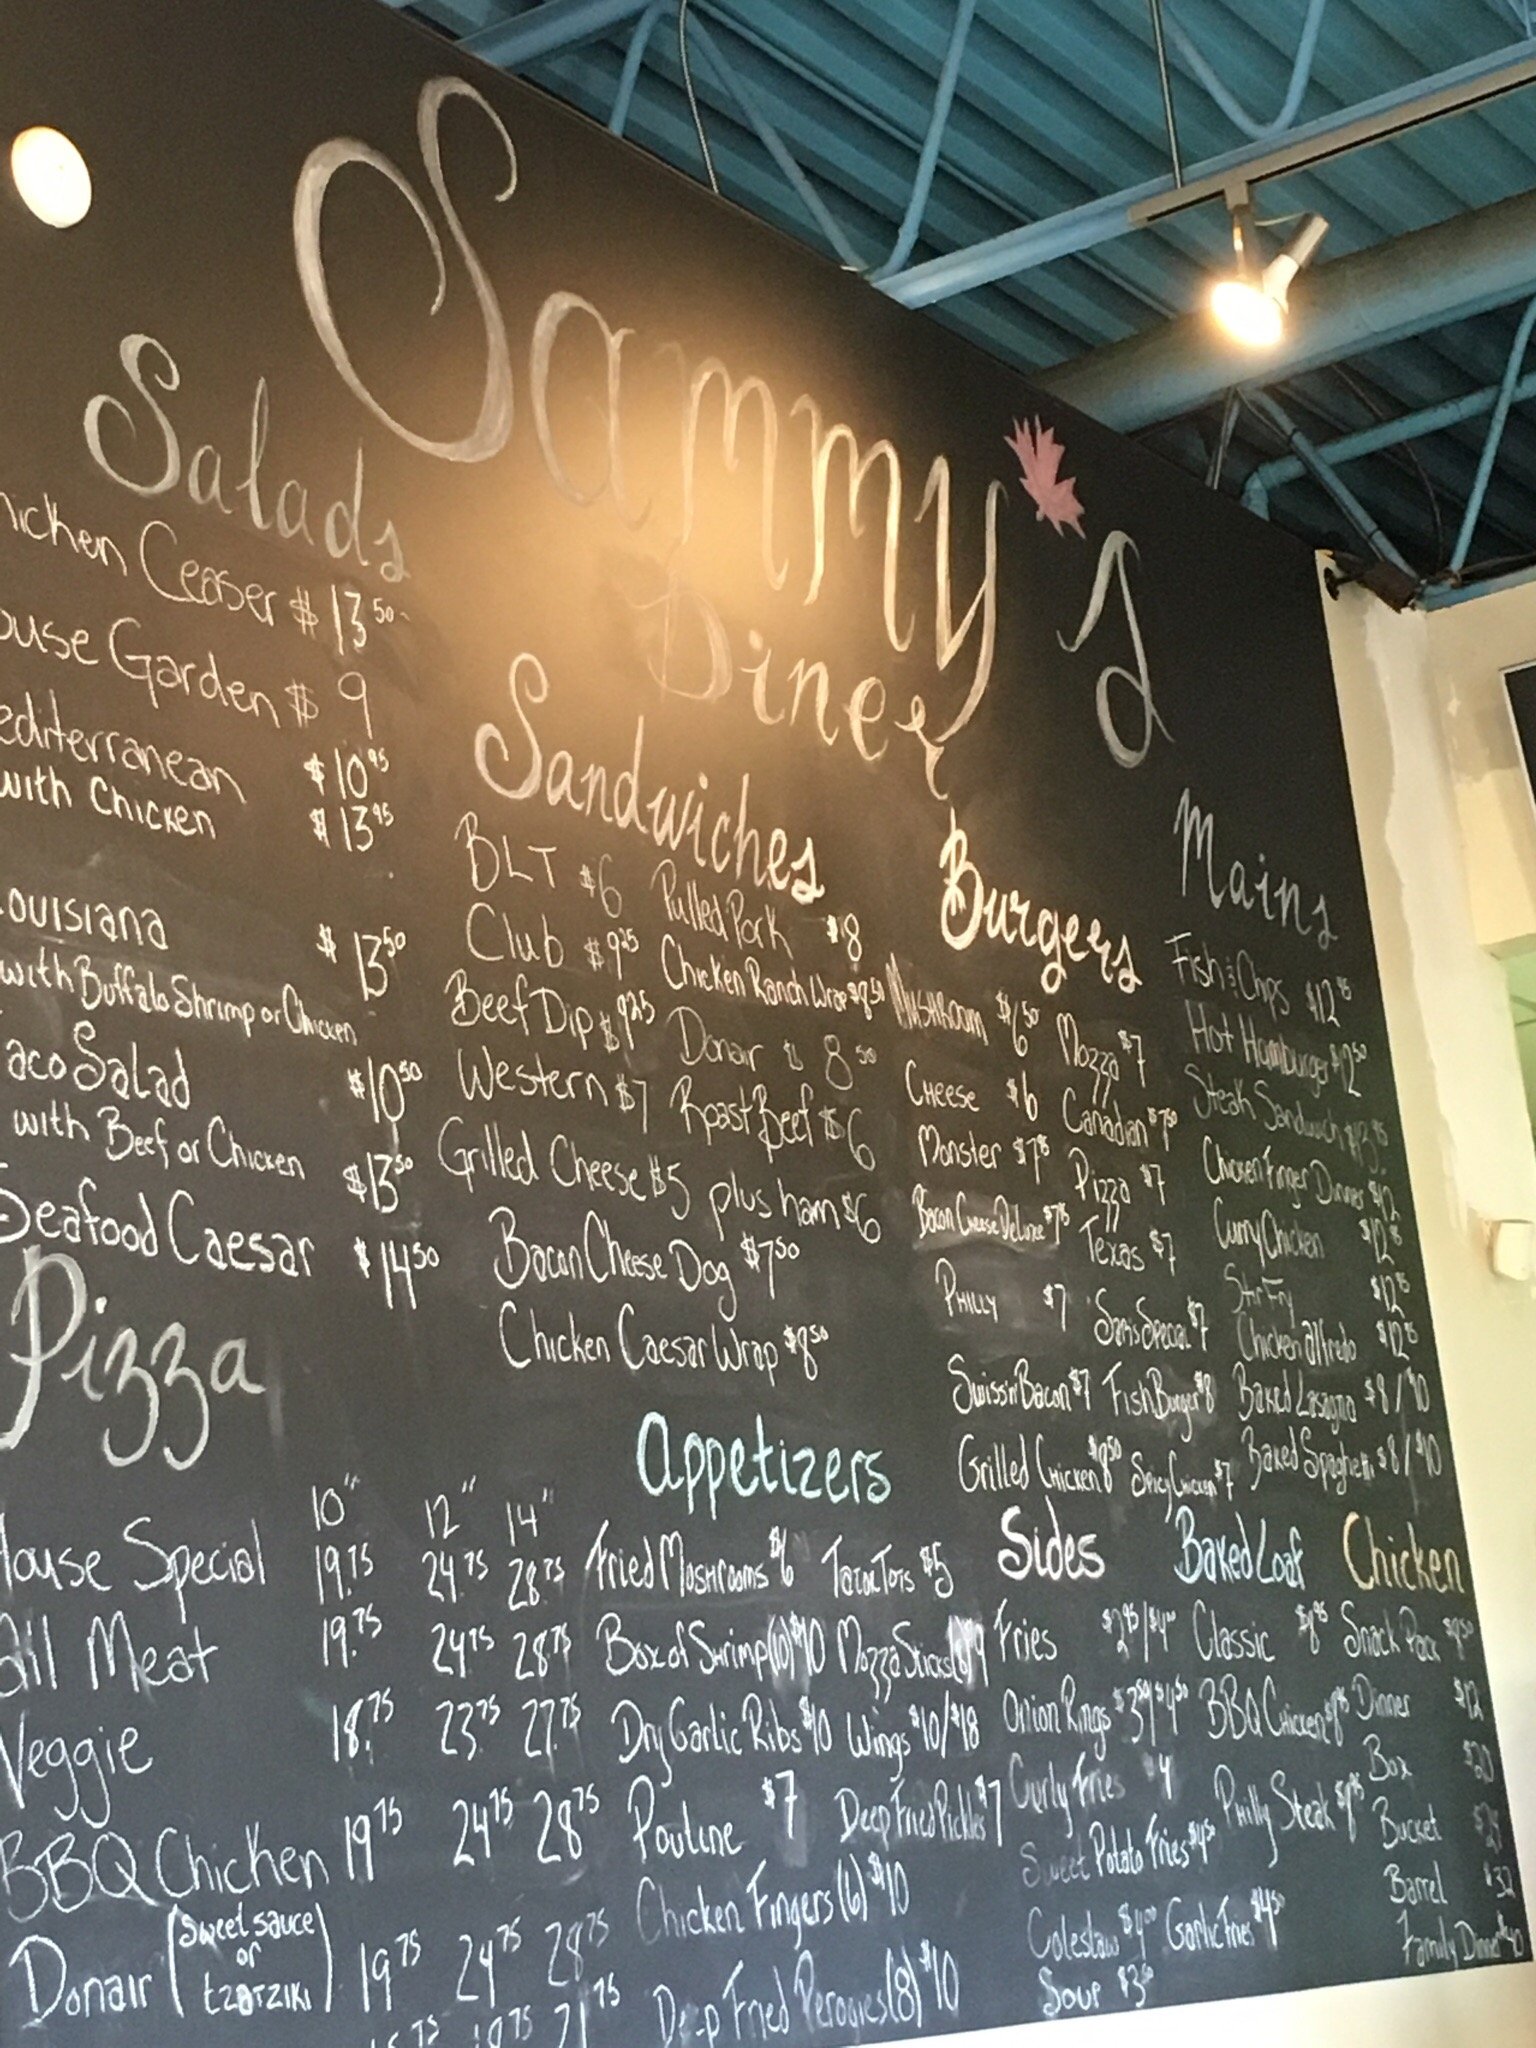 Sammy's
Diner
Salads
Ceaser $13.50
Garden $9
$10.95
with Chicken $13.95
$13.50
with Buffalo Shrimp or Chicken
Salad $10.50
with Beef or Chicken $13.50
Seafood Caesar $14.50
Pizza
10" 12" 14"
Special 19.75 24.75 28.75
Meat 19.75 24.75 28.75
Veggie 18.75 23.75 27.75
BBQ Chicken 19.75 24.75 28.75
Donair (Sweet sauce
or
tzatziki) 19.75 24.75 28.75
Sandwiches
BLT $6 Pulled Pork $8
Club $9.25 Chicken Ranch Wrap
Beef Dip $9.25 Donair $8.50
Western $7 Roast Beef $6
Grilled Cheese $5 plus ham $6
Bacon Cheese Dog $7.50
Chicken Caesar Wrap $8.50
Appetizers
Fried Moshrooms $6 Tator Tots $5
Box of Shrimp (10) $10 Mozza Sticks
Dry Garlic Ribs $10 Wings $10/$18
Poutine $7 Deep Fried Pickles $7
Chicken Fingers (6) $10
Deep Fried Perogies (8) $10
Burgers
Mushroom $6.50 Mozza $7
Cheese $6 Canadian $7.50
Monster Pizza $7
Bacon Cheese Deluxe Texas $7
Philly $7 Sam's Special $7
Swiss n' Bacon $7 Fish Burger $8
Grilled Chicken $8.50 Spicy Chicken $7
Sides
Fries
Onion Rings $3.50/$4.50
Curly Fries $4
Sweet Potato Fries $4.50
Coleslaw Garlic Fries $4.50
Soup
Mains
Fish & Chips $12.95
Hot Hamburger $12.50
Steak Sandwich
Chicken Finger Dinner $12
Curry Chicken
Stir Fry
Chicken alfredo
Baked Lasagna $8/$10
Baked Spaghetti $8/$10
Baked Loaf
Classic
BBQ Chicken
Philly Steak
Chicken
Snack Pack
Dinner $12
Box $20
Bucket
Barrel $32
Family Dinner